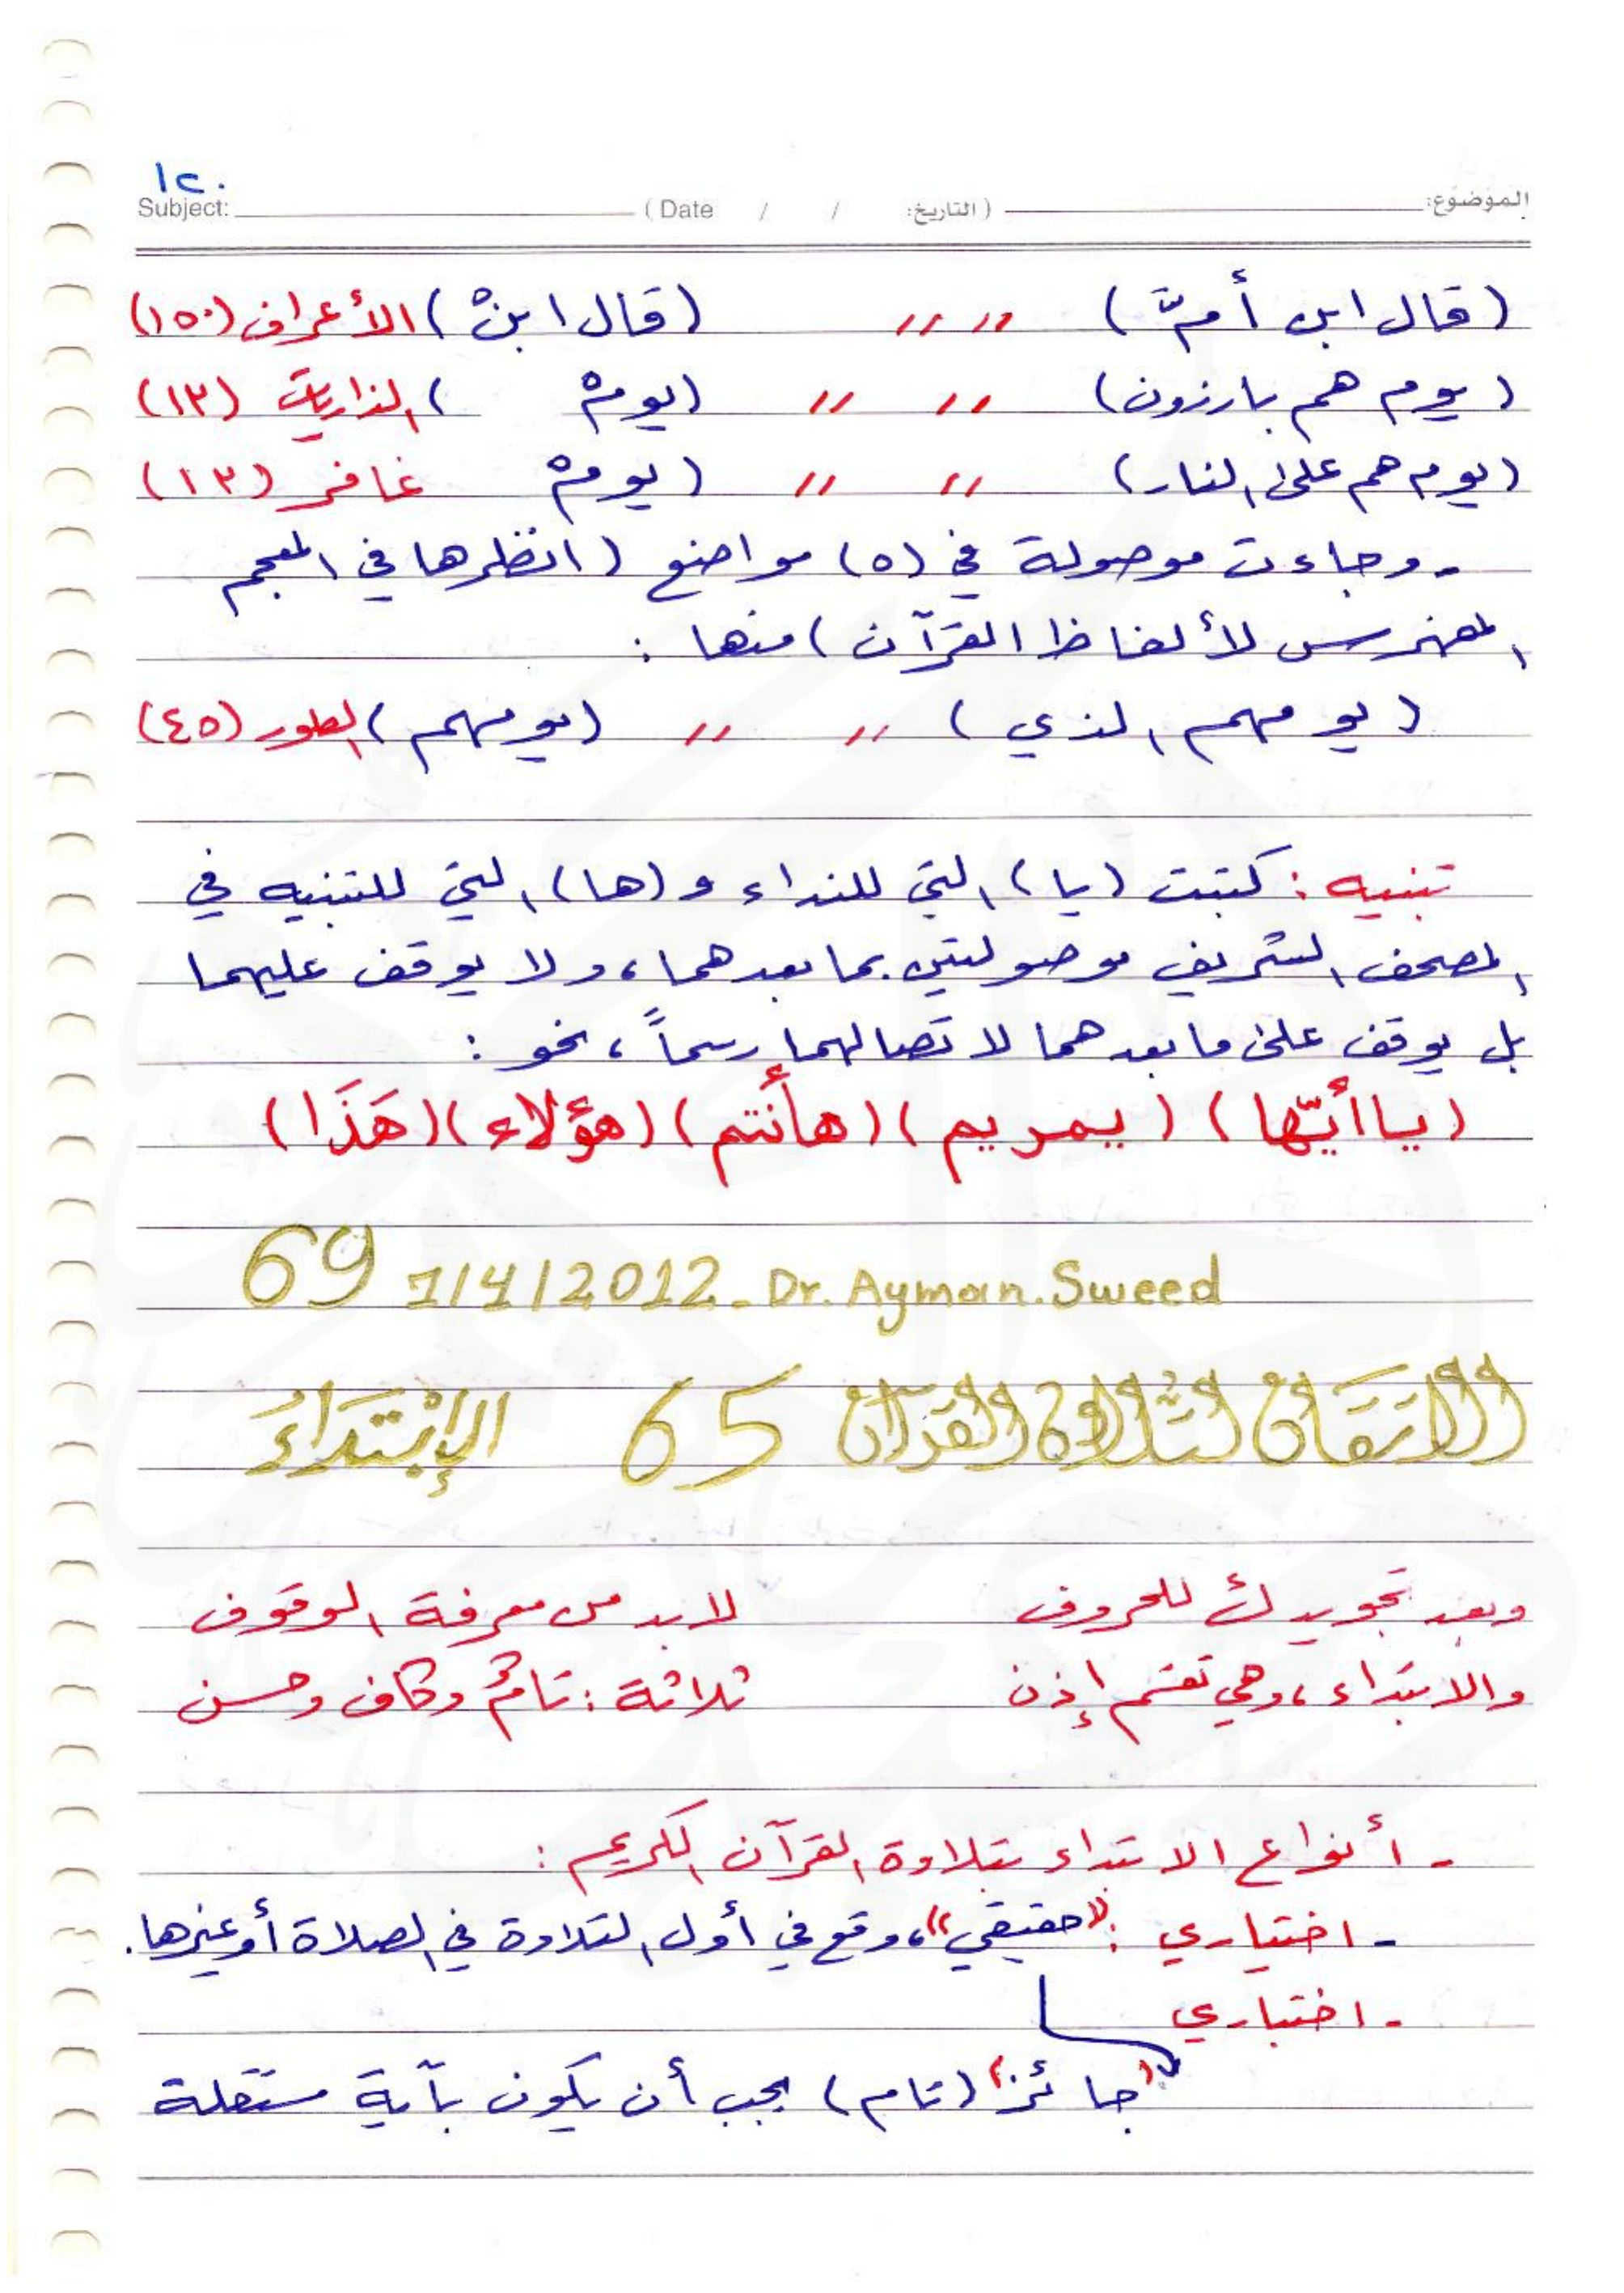 ١٢٠
الموضوع: (التاريخ: / / Date) Subject:
(قال ابن أمَّ) " " (قال ابنْ) الأعراف (١٥٠)
(يوم هم بارزون) " " (يومْ ) الذاريات (١٣)
(يوم هم على النار) " " (يومْ غافر (١٣)
- وجاءت موصولة في (٥) مواضع (انظرها في المعجم
المفهرس لألفاظ القرآن) منها :
(يومهم الذي) " " (يومهم) الطور (٤٥)
تنبيه : كتبت (يا) التي للنداء و (ها) التي للتنبيه في
المصحف الشريف موصولتين بما بعدهما، ولا يوقف عليهما
بل يوقف على ما بعدهما لاتصالهما رسماً، نحو :
(ياأيّها) (يمريم) (هأنتم) (هؤلاء) (هَذَا)
69 1/4/2012 - Dr. Ayman.Sweed
الاتقان لتلاوة القرآن 65 الإبْتَدَاءُ
وبعد تجويدك للحروف لابد من معرفة الوقوف
والابتداء، وهي تقسم إذن ثلاثة : تامٌ وكاف وحسن
- أنواع الابتداء بتلاوة القرآن الكريم :
- اختياري : "حقيقي"، وقع في أول التلاوة في الصلاة أو غيرها.
- اختباري
"جائز" (تام) يجب أن يكون بآية مستقلة